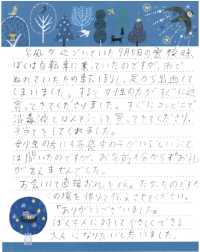 台風が近づいていた9月5日の登校時、
ぼくは自転車に乗っていたのですが、雨で
ぬれていたため転んでしまい、足から出血して
しまいました。すると女性の方がすぐに
来てくださりました。すぐにコンビニで
消毒液とばんそうこうを買ってきてくださり、
手当てをしてくれました。
女性の方にも高校生の子がいるということ
は聞いたのですが、お名前も分からずお礼が
言えませんでした。
お会いして直接お礼を伝えたかったのですが
この場を借りて伝えさせてください。
"ありがとうございました"
ぼくも人に対してやさしくできる
大人になりたいと思いました。